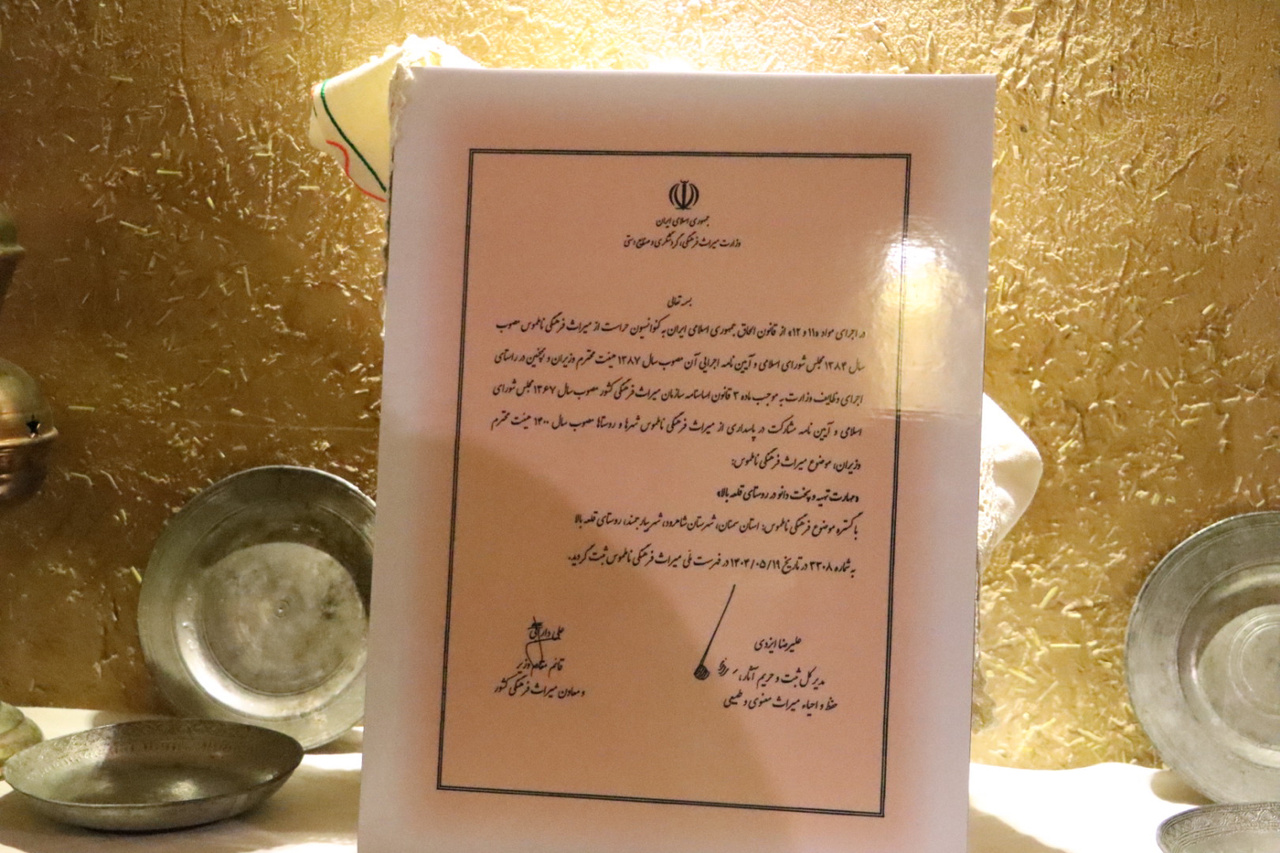 جمهوری اسلامی ایران
وزارت میراث فرهنگی، گردشگری و صنایع دستی
بسمه تعالی
در اجرای مواد «۱۱ و ۱۲» از قانون الحاق جمهوری اسلامی ایران به کنوانسیون حراست از میراث فرهنگی ناملموس مصوب
سال ۱۳۸۴ مجلس شورای اسلامی و آیین نامه اجرایی آن مصوب سال ۱۳۸۷ هیئت محترم وزیران و همچنین در راستای
اجرای وظایف وزارت به موجب ماده ۳ قانون اساسنامه سازمان میراث فرهنگی کشور مصوب سال ۱۳۶۷ مجلس شورای
اسلامی و آیین نامه مشارکت در پاسداری از میراث فرهنگی ناملموس شهرها و روستاها مصوب سال ۱۴۰۰ هیئت محترم
وزیران، موضوع میراث فرهنگی ناملموس:
«مهارت تهیه و پخت دانو در روستای قلعه بالا»
با گستره موضوع فرهنگی ناملموس: استان سمنان، شهرستان شاهرود، شهر بیارجمند، روستای قلعه بالا
به شماره ۳۳۰۸ در تاریخ ۱۴۰۳/۰۵/۱۹ در فهرست ملی میراث فرهنگی ناملموس ثبت گردید.
علیرضا ایزدی
مدیر کل ثبت و حریم آثار،
حفظ و احیاء میراث معنوی و طبیعی
علی دارابی
قائم مقام وزیر
و معاون میراث فرهنگی کشور